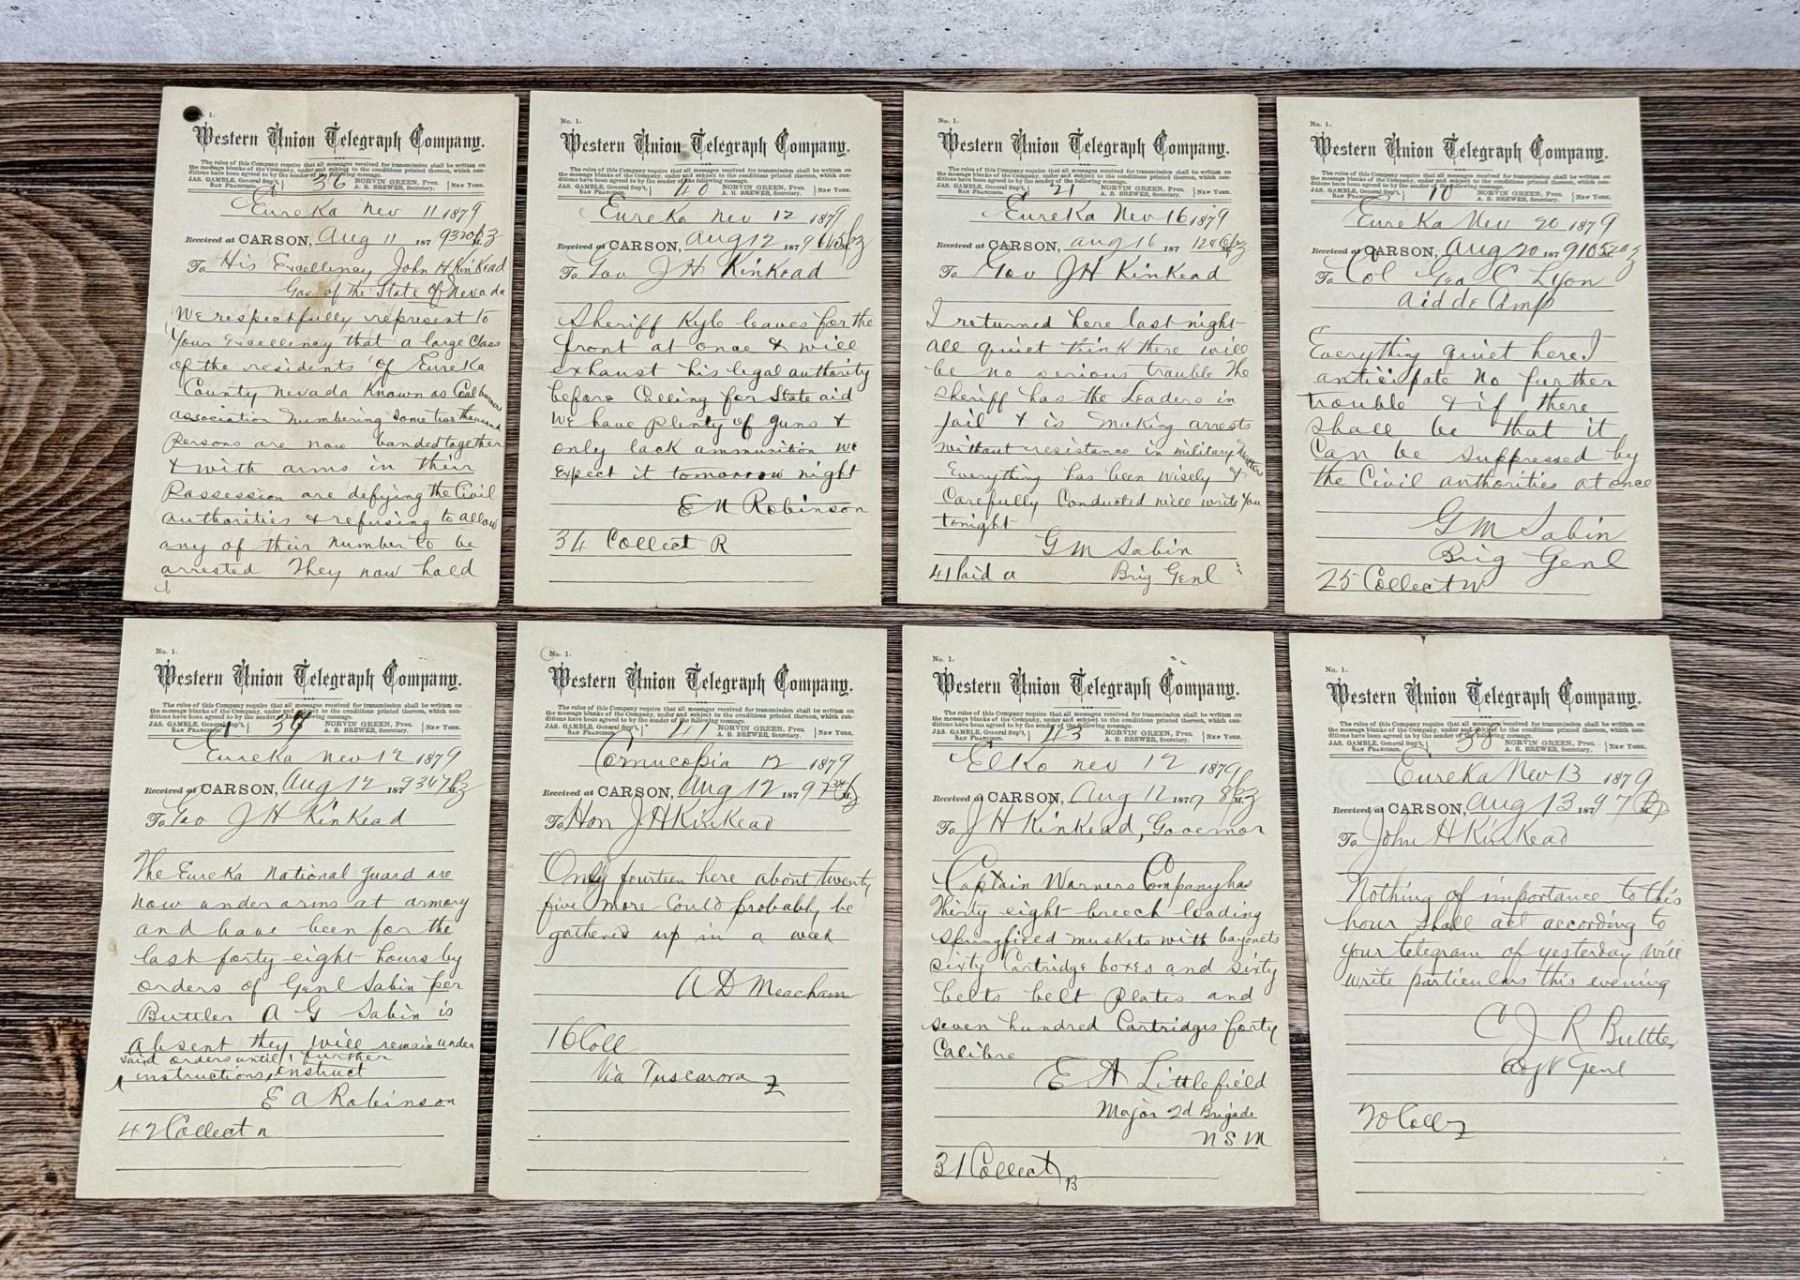 1.
Western Union Telegraph Company.
The rules of this Company require that all messages received for transmission shall be written on
the message blanks of the Company, under and subject to the conditions printed thereon, which con-
ditions have been agreed to by the sender of the following message.
JAS. GAMBLE, General Sup't, NORVIN GREEN, Pres.
SAN FRANCISCO. 36 A. R. BREWER, Secretary. New York.
Eureka Nev 11 1879
Received at CARSON, Aug 11 187
To His Excellency John H Kinkead
Gov of the State of Nevada
We respectfully represent to
Your Excellency that a large class
of the residents of Eureka
County Nevada Known as Coal burners
association Numbering some two thousand
Persons are now banded together
& with arms in their
Possession are defying the Civil
authorities & refusing to allow
any of their number to be
arrested They now hold
No. 1.
Western Union Telegraph Company.
The rules of this Company require that all messages received for transmission shall be written on
the message blanks of the Company, under and subject to the conditions printed thereon, which con-
ditions have been agreed to by the sender of the following message.
JAS. GAMBLE, General Sup't, NORVIN GREEN, Pres.
SAN FRANCISCO. 40 A. R. BREWER, Secretary. New York.
Eureka Nev 12 1879
Received at CARSON, Aug 12 1879
To Gov J H Kinkead
Sheriff Kyle leaves for the
front at once & will
exhaust his legal authority
before Calling for State aid
We have plenty of guns &
only lack ammunition we
expect it tomorrow night
Robinson
34 Collect R
No. 1.
Western Union Telegraph Company.
The rules of this Company require that all messages received for transmission shall be written on
the message blanks of the Company, under and subject to the conditions printed thereon, which con-
ditions have been agreed to by the sender of the following message.
JAS. GAMBLE, General Sup't, NORVIN GREEN, Pres.
SAN FRANCISCO. 21 A. R. BREWER, Secretary. New York.
Eureka Nev 16 1879
Received at CARSON, Aug 16 187
To Gov J H Kinkead
I returned here last night
all quiet think there will
be no serious trouble The
Sheriff has the Leaders in
Jail & is making arrests
without resistance in military
Everything has been wisely &
Carefully Conducted will write You
tonight
G M Sabin
41 Paid a Brig Genl
No. 1.
Western Union Telegraph Company.
The rules of this Company require that all messages received for transmission shall be written on
the message blanks of the Company, under and subject to the conditions printed thereon, which con-
ditions have been agreed to by the sender of the following message.
JAS. GAMBLE, General Sup't, NORVIN GREEN, Pres.
SAN FRANCISCO. 10 A. R. BREWER, Secretary. New York.
Eureka Nev 20 1879
Received at CARSON, Aug 20 1879
To Col Geo C Lyon
Aid de Camp
Everything quiet here I
anticipate no further
trouble & if there
shall be that it
Can be suppressed by
the Civil authorities at once
G M Sabin
Brig Genl
25 Collect
No. 1.
Western Union Telegraph Company.
The rules of this Company require that all messages received for transmission shall be written on
the message blanks of the Company, under and subject to the conditions printed thereon, which con-
ditions have been agreed to by the sender of the following message.
JAS. GAMBLE, General Sup't, NORVIN GREEN, Pres.
SAN FRANCISCO. A. R. BREWER, Secretary. New York.
Eureka Nev 12 1879
Received at CARSON, Aug 12 187
To Gov J H Kinkead
The Eureka National guard are
now under arms at armory
and have been for the
last forty eight hours by
orders of Genl Sabin per
Buttler A G Sabin is
absent they will remain under
said orders until further
instructions, instruct
E A Robinson
42 Collect
No. 1.
Western Union Telegraph Company.
The rules of this Company require that all messages received for transmission shall be written on
the message blanks of the Company, under and subject to the conditions printed thereon, which con-
ditions have been agreed to by the sender of the following message.
JAS. GAMBLE, General Sup't, NORVIN GREEN, Pres.
SAN FRANCISCO. A. R. BREWER, Secretary. New York.
Cornucopia 12 1879
Received at CARSON, Aug 12 1879
To Hon J H Kinkead
Only fourteen here about twenty
five more Could probably be
gathered up in a week
A D Meacham
16 Coll
Via Tuscarora
No. 1.
Western Union Telegraph Company.
The rules of this Company require that all messages received for transmission shall be written on
the message blanks of the Company, under and subject to the conditions printed thereon, which con-
ditions have been agreed to by the sender of the following message.
JAS. GAMBLE, General Sup't, NORVIN GREEN, Pres.
SAN FRANCISCO. 43 A. R. BREWER, Secretary. New York.
Elko nev 12 1879
Received at CARSON, Aug 12 1879
To J H Kinkead, Governor
Captain Warners Company has
Thirty eight breech loading
Springfield muskets with bayonets
sixty Cartridge boxes and sixty
belts belt Plates and
seven hundred Cartridges forty
Calibre
E A Littlefield
Major 2d Brigade
N S M
31 Collect B
No. 1.
Western Union Telegraph Company.
The rules of this Company require that all messages received for transmission shall be written on
the message blanks of the Company, under and subject to the conditions printed thereon, which con-
ditions have been agreed to by the sender of the following message.
JAS. GAMBLE, General Sup't, NORVIN GREEN, Pres.
SAN FRANCISCO. A. R. BREWER, Secretary. New York.
Eureka Nev 13 1879
Received at CARSON, Aug 13 1879
To John H Kinkead
Nothing of importance to this
hour Shall act according to
your telegram of yesterday will
write particulars this evening
C J R Buttler
Adjt Genl
20 Coll